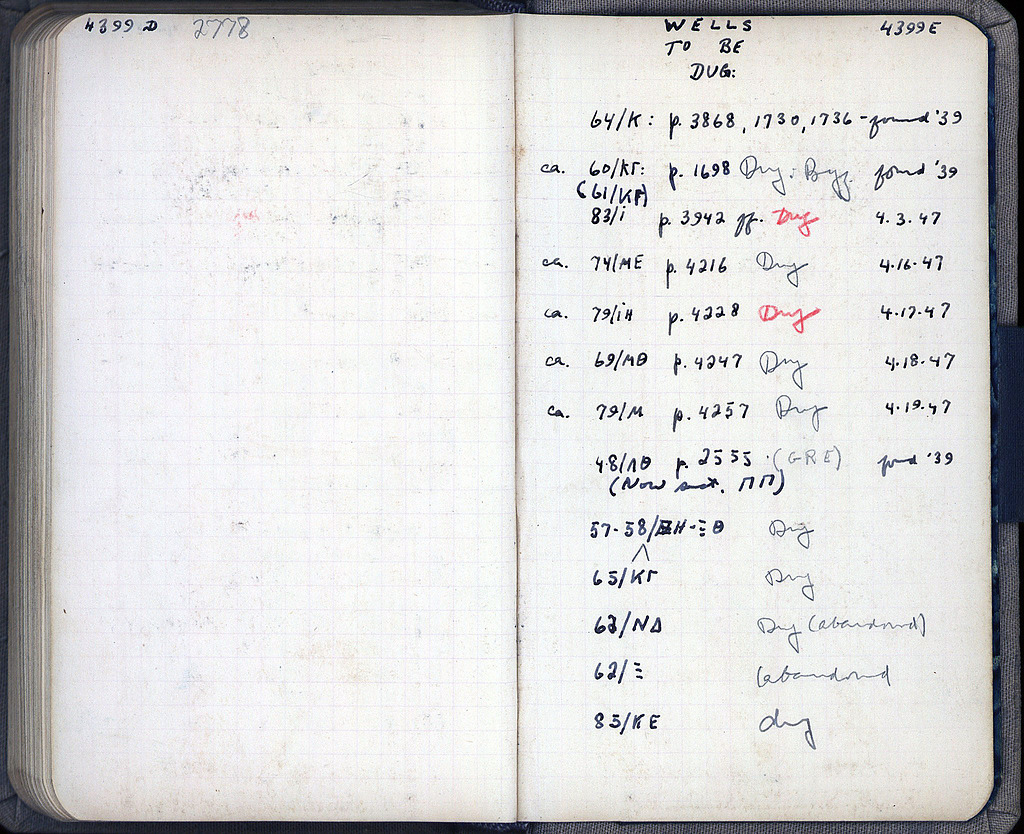 4399 D 2778
WELLS 4399 E
TO BE
DUG:
64/K: p. 3868, 1730, 1736 - found '39
ca. 60/ΚΓ: p. 1698 Dug. Byz. found '39
(61/ΚΓ)
83/i p. 3942 ff. Dug 4.3.47
ca. 74/ΜΕ p. 4216 Dug 4.16.47
ca. 79/iH p. 4228 Dug 4.17.47
ca. 69/ΜΘ p. 4247 Dug 4.18.47
ca. 79/Μ p. 4257 Dug 4.19.47
48/ΛΘ p. 2555 (GRE) found '39
(Now sect. ΠΠ)
57-58/ΞΗ-ΞΘ Dug
65/ΚΓ Dug
/ΝΔ Dug (abandoned)
62/Ξ (abandoned
83/ΚΕ dug